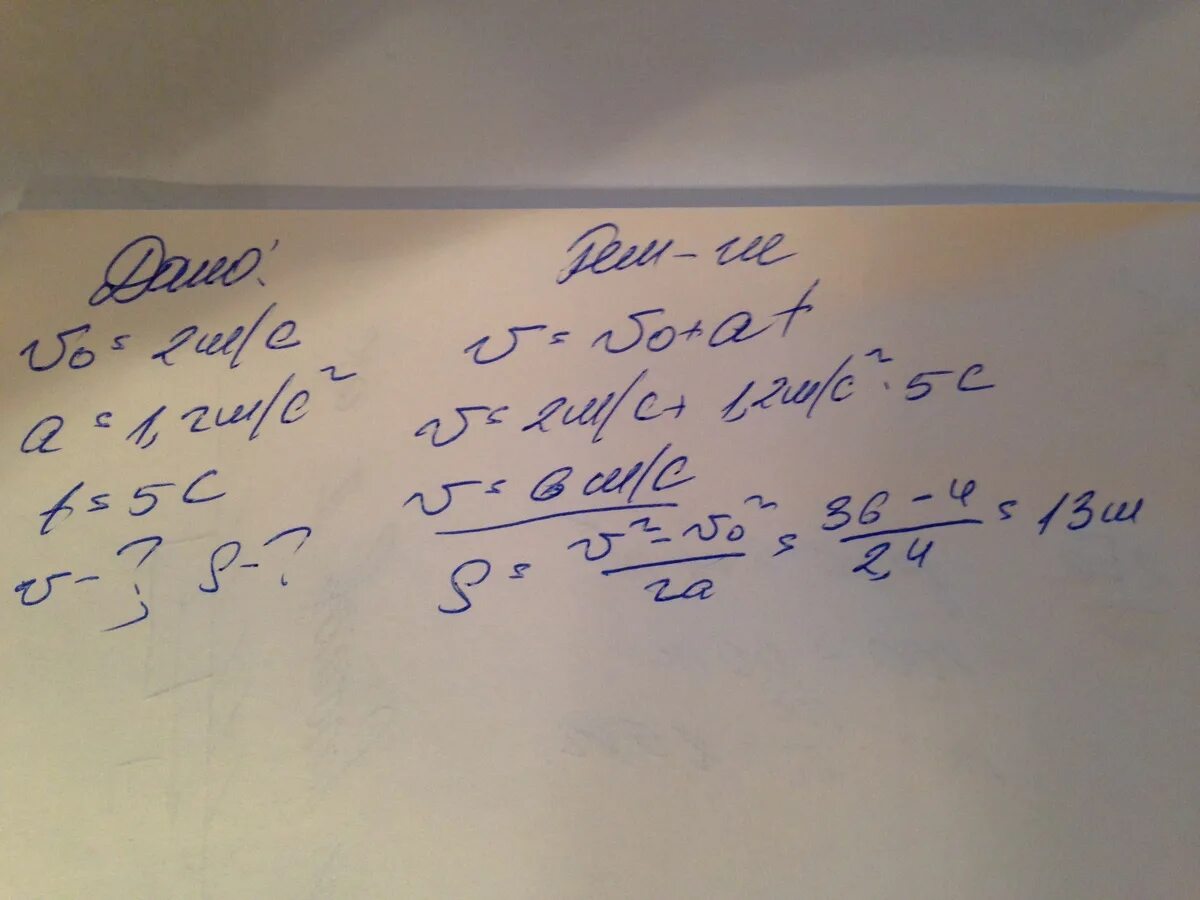 Дано:
v₀ = 2м/с
a = 1,2м/с²
t = 5с
v - ? S - ?
Реш-ие
v = v₀ + at
v = 2м/с + 1,2м/с² · 5с
v = 6 м/с
S = (v² - v₀²)/2a = (36 - 4)/2,4 = 13м